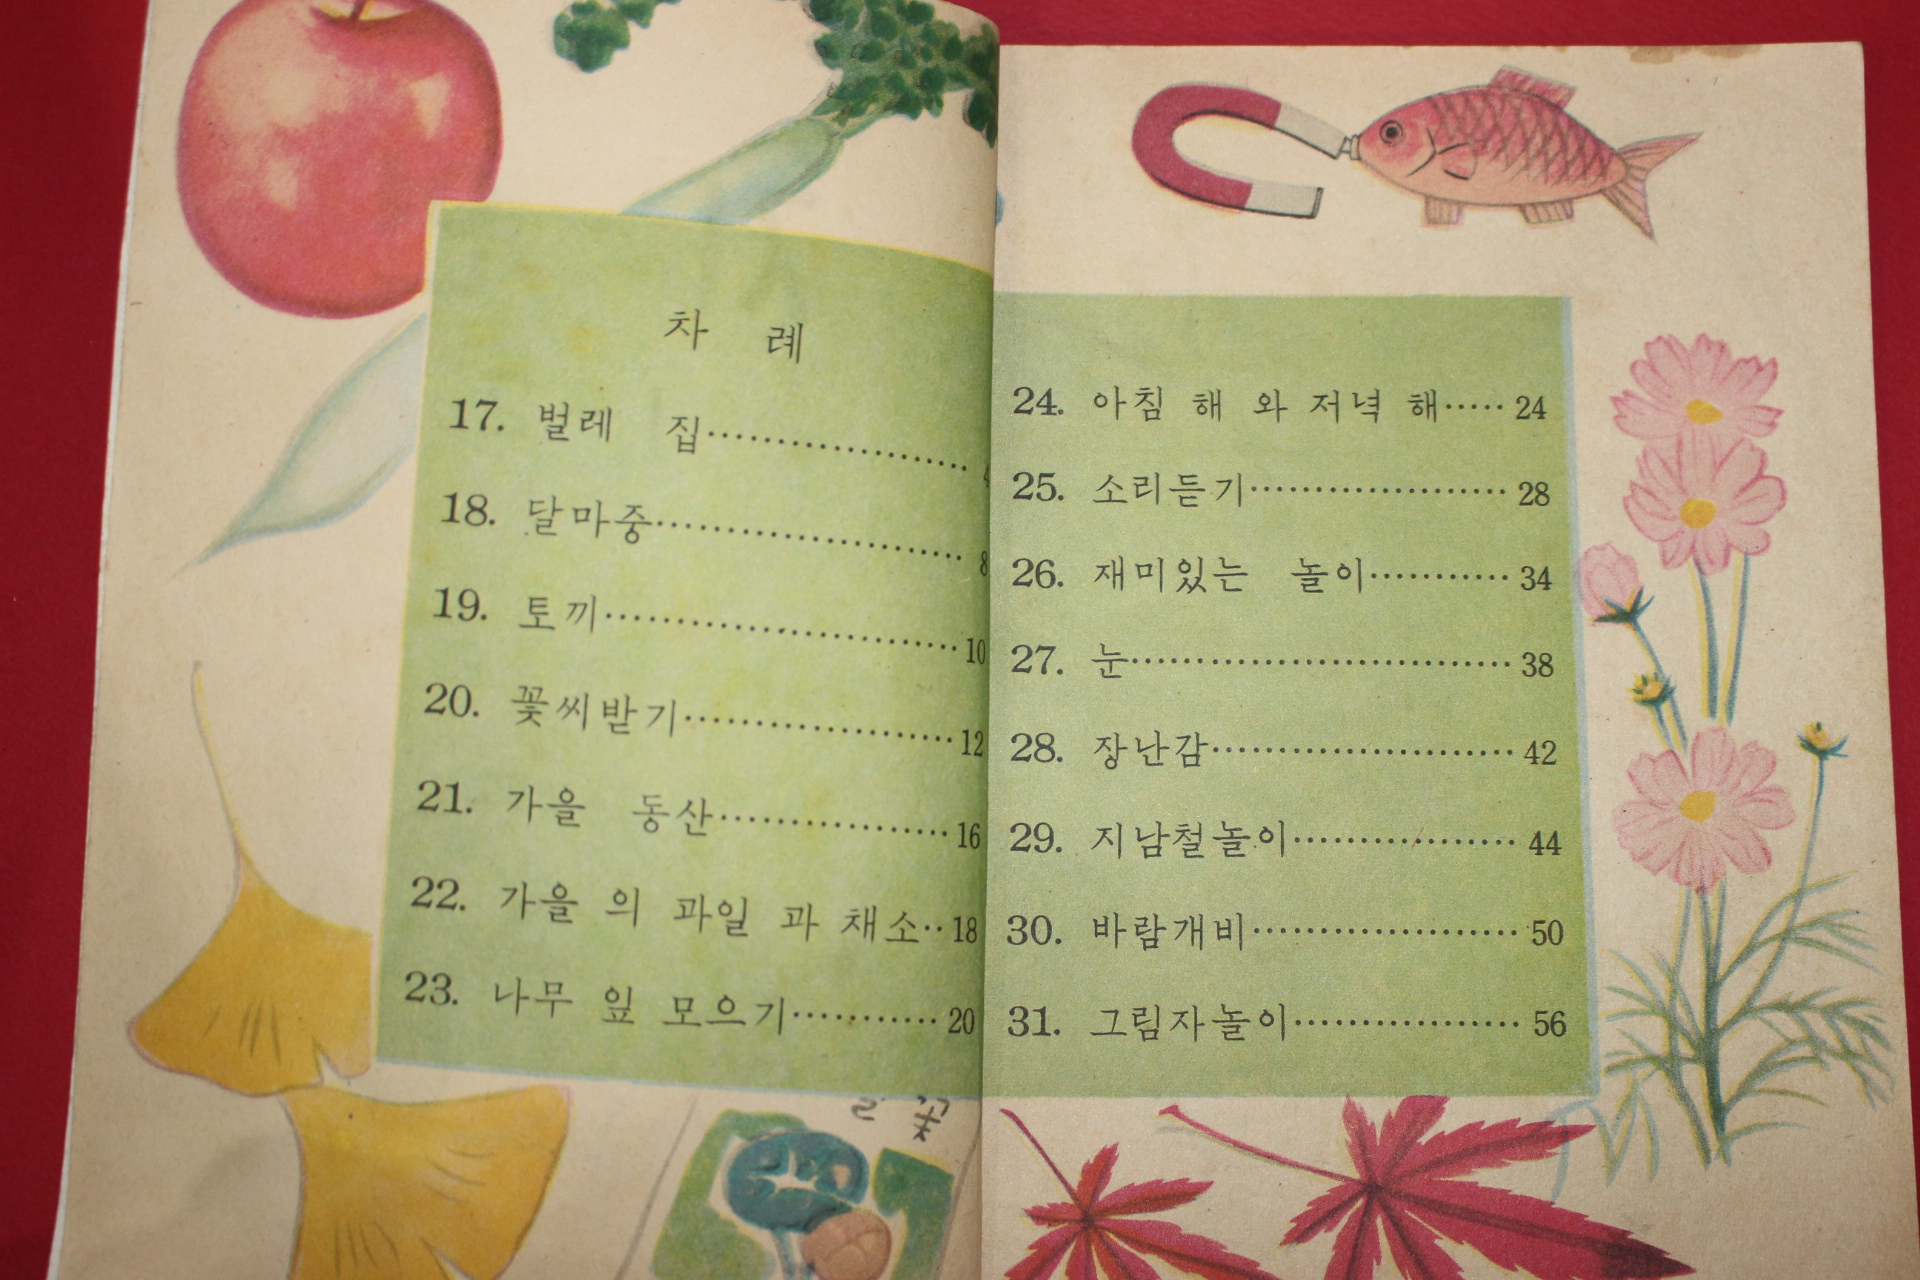 차 례
17. 벌레 집 4
18. 달마중 8
19. 토끼 10
20. 꽃씨받기 12
21. 가을 동산 16
22. 가을 의 과일 과 채소 18
23. 나무 잎 모으기 20
24. 아침 해 와 저녁 해 24
25. 소리듣기 28
26. 재미있는 놀이 34
27. 눈 38
28. 장난감 42
29. 지남철놀이 44
30. 바람개비 50
31. 그림자놀이 56
꽃